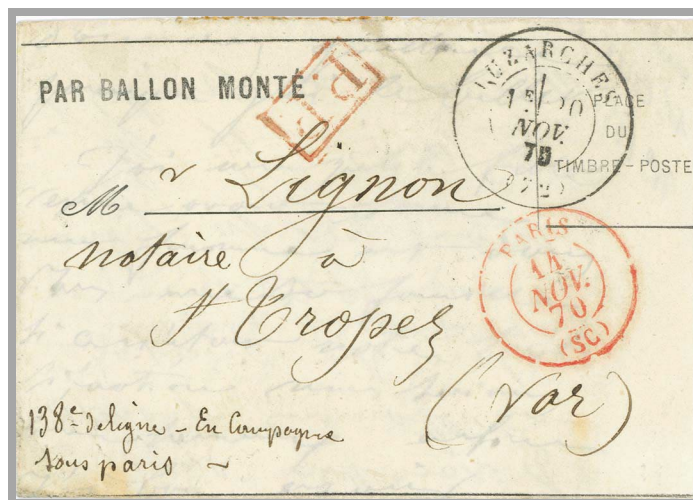 PAR BALLON MONTÉ
P.P.
LUZARCHES
1E 20
NOV.
70
(72)
PLACE
DU
TIMBRE-POSTE
Mr Lignon
notaire à
St Tropez
(Var)
PARIS
14
NOV.
70
(SC)
138e de ligne - En Campagne
sous paris -